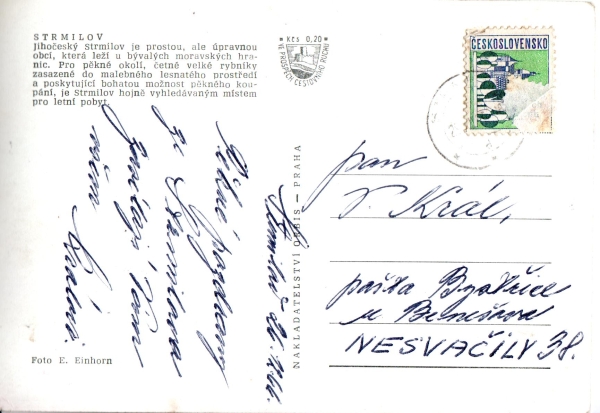 STRMILOV
Jihočeský strmilov je prostou, ale úpravnou
obcí, která leží u bývalých moravských hra-
nic. Pro pěkné okolí, četné velké rybníky
zasazené do malebného lesnatého prostředí
a poskytující bohatou možnost pěkného kou-
pání, je Strmilov hojně vyhledávaným místem
pro letní pobyt.
Kčs 0,20
VE PROSPĚCH CESTOVNÍHO RUCHU
ČESKOSLOVENSKO
Pěkné pozdravy
ze Strmilova
posílají Vám
všem
NAKLADATELSTVÍ ORBIS — PRAHA
pan
V. Král,
pošta Bystřice
u Benešova
NESVAČILY 38.
Foto E. Einhorn